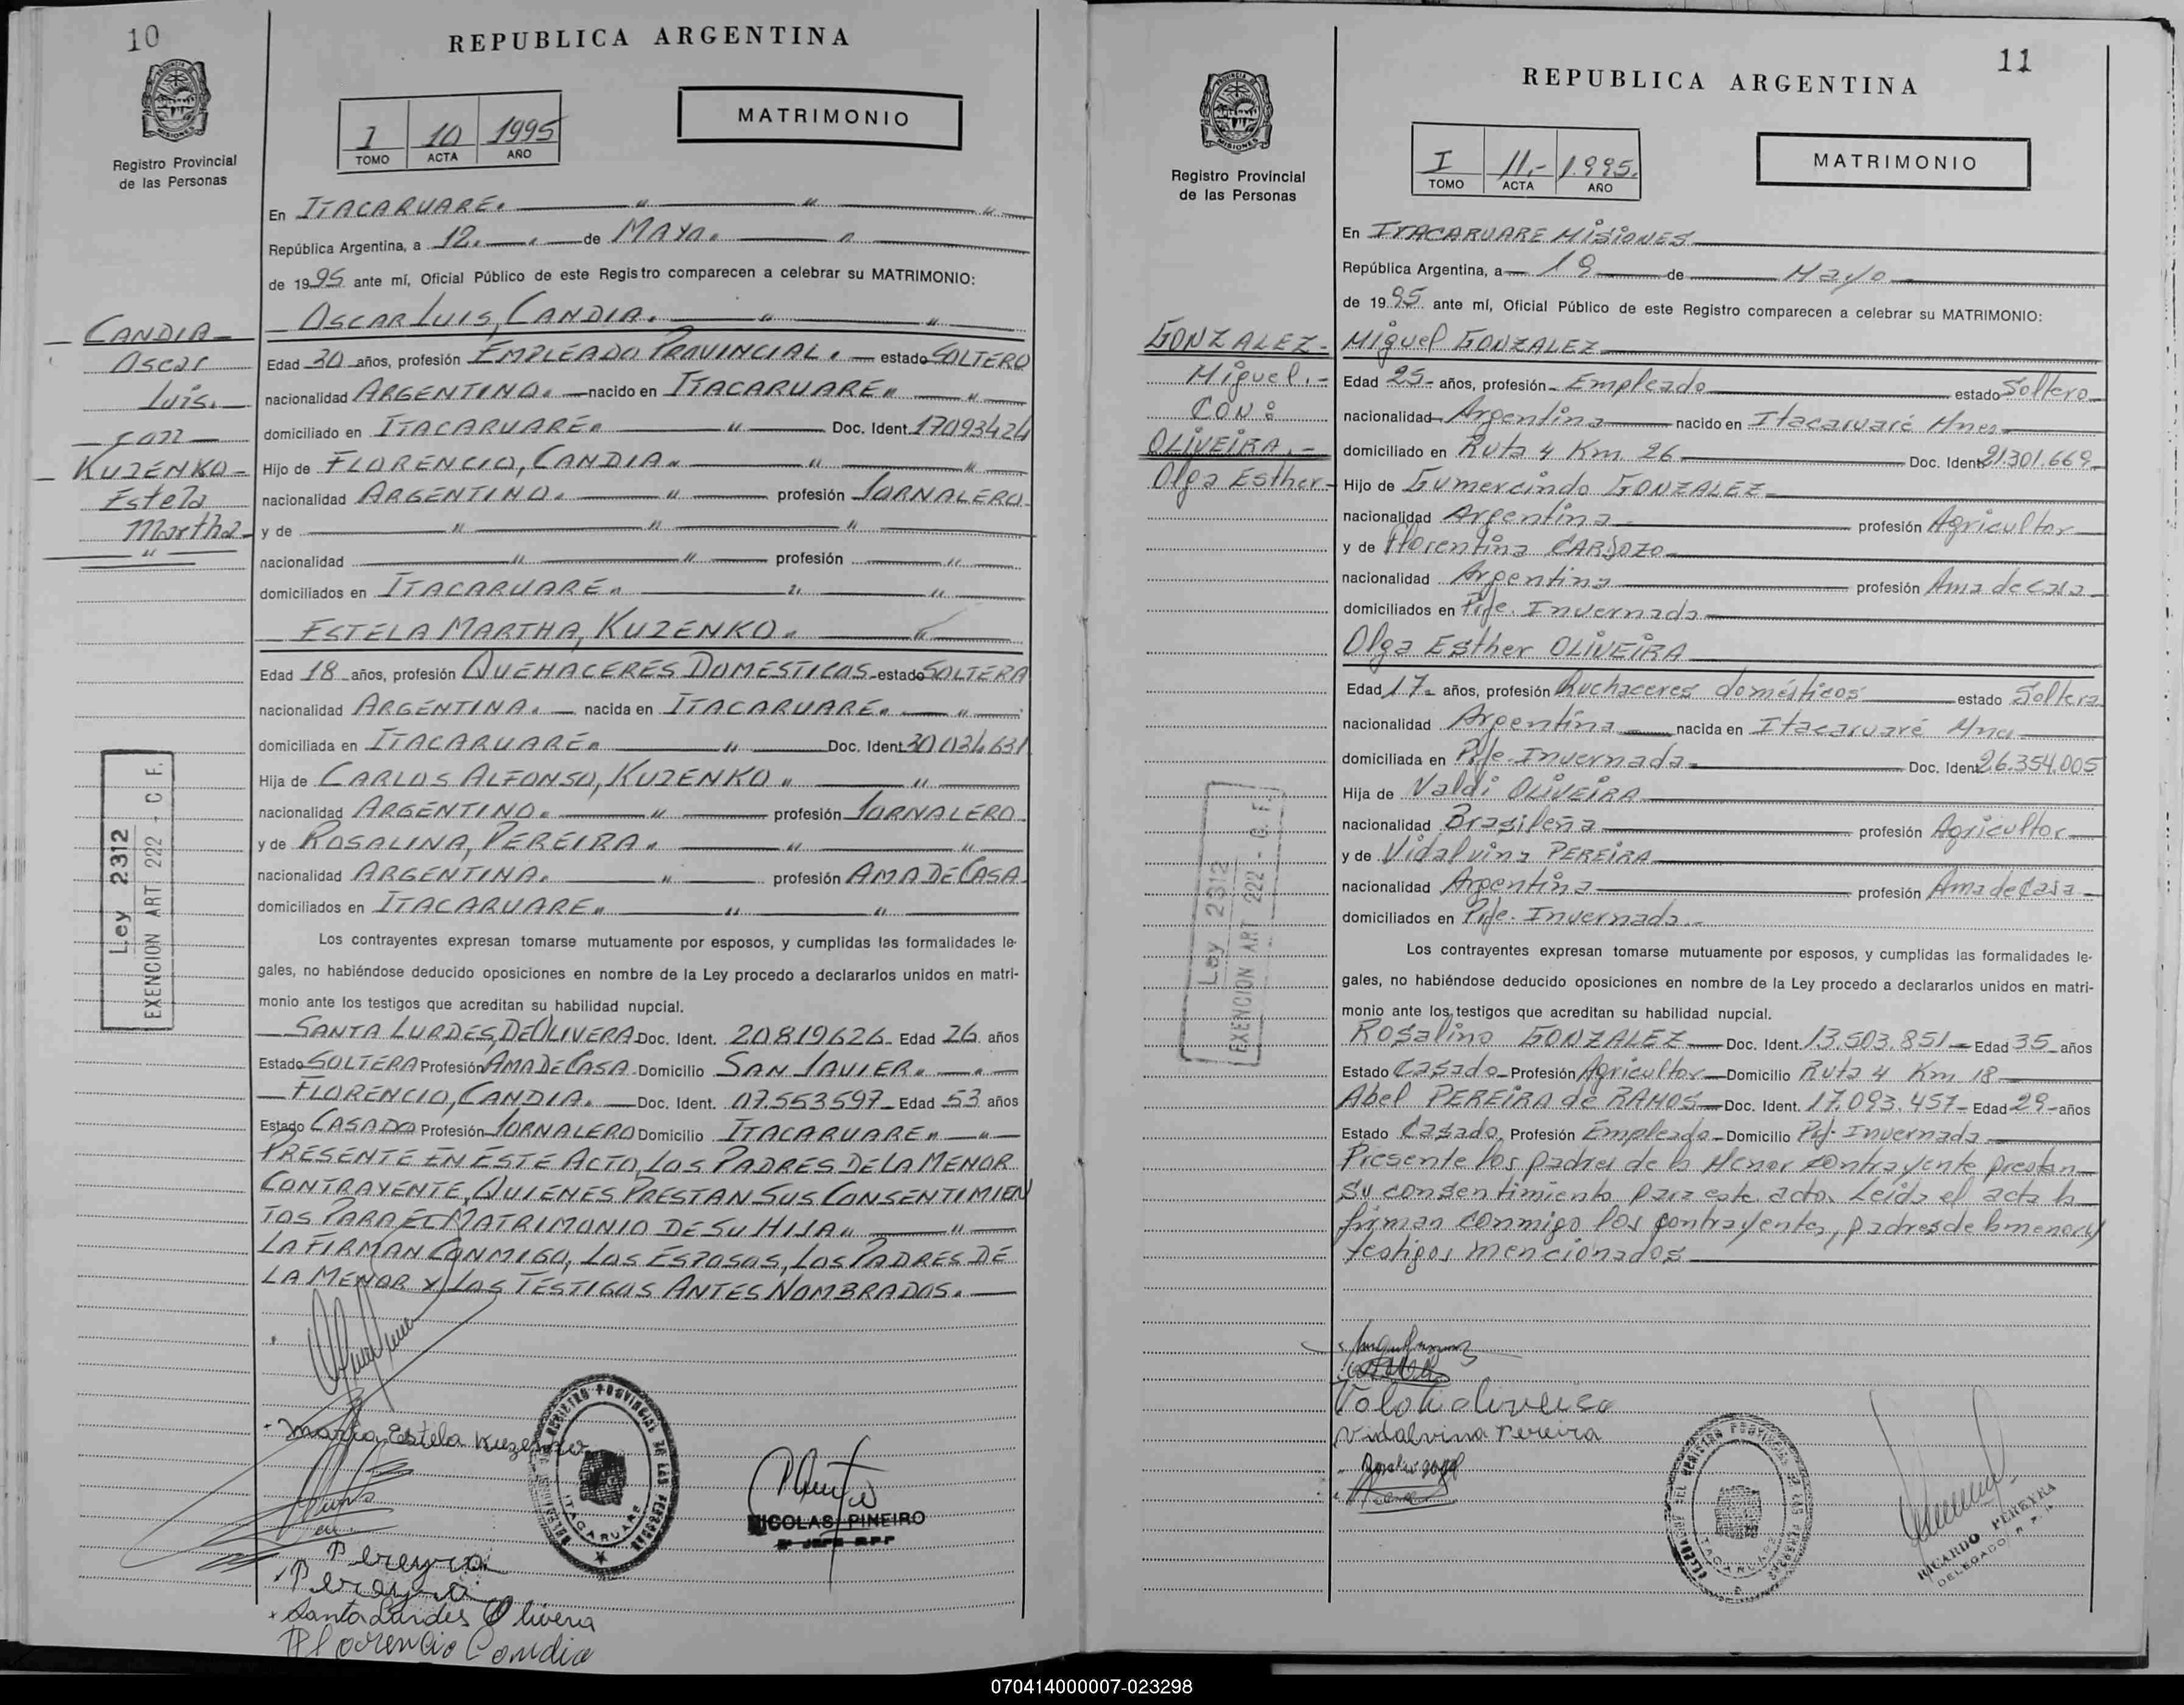 10
REPUBLICA ARGENTINA
MISIONES
Registro Provincial
de las Personas
I 10 1995
TOMO ACTA AÑO
MATRIMONIO
En ITACARUARE. " " "
República Argentina, a 12. " de MAYO. "
de 1995 ante mí, Oficial Público de este Registro comparecen a celebrar su MATRIMONIO:
OSCAR LUIS, CANDIA. " "
Edad 30 años, profesión EMPLEADO PROVINCIAL. estado SOLTERO
nacionalidad ARGENTINO. nacido en ITACARUARE. "
domiciliado en ITACARUARE. " Doc. Ident. 17093424
Hijo de FLORENCIO, CANDIA. " "
nacionalidad ARGENTINO. " profesión JORNALERO
y de " " "
nacionalidad " " profesión "
domiciliados en ITACARUARE. " "
ESTELA MARTHA, KUZENKO. "
Edad 18 años, profesión QUEHACERES DOMESTICOS estado SOLTERA
nacionalidad ARGENTINA. nacida en ITACARUARE. "
domiciliada en ITACARUARE. " Doc. Ident. 30034631
Hija de CARLOS ALFONSO, KUZENKO " "
nacionalidad ARGENTINO. " profesión JORNALERO
y de ROSALINA, PEREIRA. " "
nacionalidad ARGENTINA. " profesión AMA DE CASA
domiciliados en ITACARUARE. " "
Los contrayentes expresan tomarse mutuamente por esposos, y cumplidas las formalidades le-
gales, no habiéndose deducido oposiciones en nombre de la Ley procedo a declararlos unidos en matri-
monio ante los testigos que acreditan su habilidad nupcial.
SANTA LURDES, DE OLIVERA Doc. Ident. 20819626 Edad 26 años
Estado SOLTERA Profesión AMA DE CASA Domicilio SAN JAVIER. "
FLORENCIO, CANDIA. Doc. Ident. 07.553597 Edad 53 años
Estado CASADO Profesión JORNALERO Domicilio ITACARUARE. "
PRESENTE EN ESTE ACTO, LOS PADRES DE LA MENOR
CONTRAYENTE, QUIENES PRESTAN SUS CONSENTIMIEN
TOS PARA EL MATRIMONIO DE SU HIJA. "
LA FIRMAN CONMIGO, LOS ESPOSOS, LOS PADRES DE
LA MENOR Y LOS TESTIGOS ANTES NOMBRADOS.
CANDIA
Oscar
Luis.
con
KUZENKO
Estela
Martha
"
Ley 2312
EXENCION ART 222 - C F.
Maria Estela Kuzenko
Pereyra
Pereyra
Santa Lurdes Olivera
Florencio Candia
REGISTRO PROVINCIAL DE LAS PERSONAS
ITACARUARE
NICOLAS PIÑEIRO
2º JEFE RPP
11
REPUBLICA ARGENTINA
MISIONES
Registro Provincial
de las Personas
I 11.- 1.995.
TOMO ACTA AÑO
MATRIMONIO
En ITACARUARE MISIONES
República Argentina, a 19 de Mayo
de 1995 ante mí, Oficial Público de este Registro comparecen a celebrar su MATRIMONIO:
Miguel GONZALEZ
Edad 25- años, profesión Empleado estado Soltero
nacionalidad Argentina nacido en Itacaruaré Mnes
domiciliado en Ruta 4 Km 26 Doc. Ident. 21.301.669
Hijo de Gumercindo GONZALEZ
nacionalidad Argentina profesión Agricultor
y de Florentina CARDOZO
nacionalidad Argentina profesión Ama de casa
domiciliados en Pje. Invernada
Olga Esther OLIVEIRA
Edad 17- años, profesión Quehaceres domésticos estado Soltera
nacionalidad Argentina nacida en Itacaruaré Mnes
domiciliada en Pje. Invernada Doc. Ident. 26.354.005
Hija de Valdi OLIVEIRA
nacionalidad Brasileña profesión Agricultor
y de Vidalvina PEREIRA
nacionalidad Argentina profesión Ama de Casa
domiciliados en Pje. Invernada.-
Los contrayentes expresan tomarse mutuamente por esposos, y cumplidas las formalidades le-
gales, no habiéndose deducido oposiciones en nombre de la Ley procedo a declararlos unidos en matri-
monio ante los testigos que acreditan su habilidad nupcial.
Rosalino GONZALEZ Doc. Ident. 13.503.851 Edad 35 años
Estado Casado Profesión Agricultor Domicilio Ruta 4 Km 18
Abel PEREIRA de RAMOS Doc. Ident. 17.093.457 Edad 29 años
Estado Casado Profesión Empleado Domicilio Pj. Invernada
Presente los padres de la Menor contrayente prestan
su consentimiento para este acto. Leída el acta la
firman conmigo los contrayentes, padres de la menor y
testigos mencionados
GONZALEZ.-
Miguel.-
CON:
OLIVEIRA.-
Olga Esther
Ley 2312
EXENCION ART 222 - C. F.
Vidalvina Pereira
REGISTRO PROVINCIAL DE LAS PERSONAS
ITACARUARE
RICARDO PEREYRA
DELEGADO R. P. P.
070414000007-023298